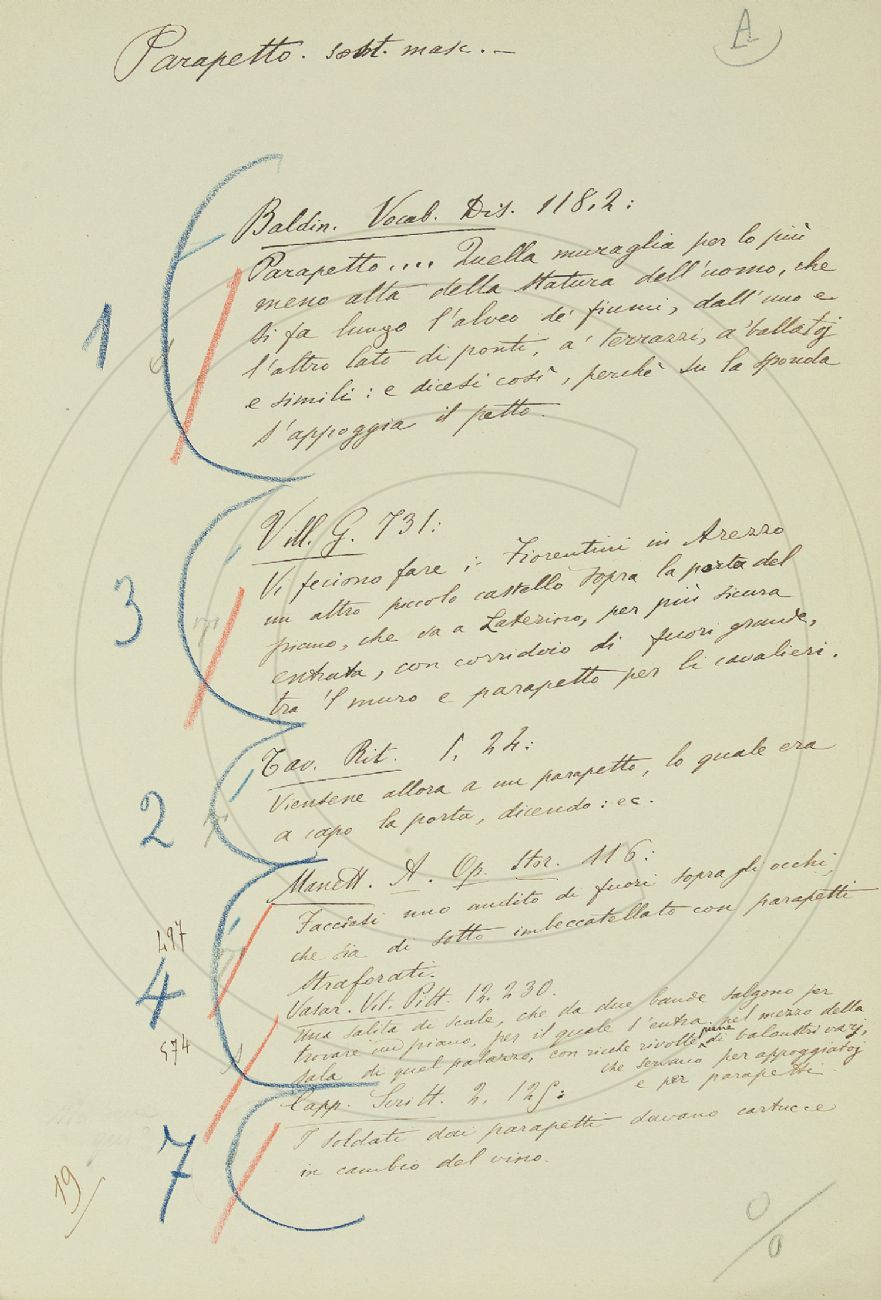 A
Parapetto. sost. masc. —
Baldin. Vocab. Dis. 118.2:
Parapetto.... Quella muraglia per lo più
meno alta della statura dell'uomo, che
si fa lungo l'alveo de' fiumi, dall'uno e
l'altro lato di ponti, a' terrazzi, a' ballatoj
e simili: e dicesi così, perchè su la sponda
s'appoggia il petto.
1
Vill. G. 731:
Vi feciono fare i Fiorentini in Arezzo
un altro piccolo castello sopra la porta del
piano, che va a Laterino, per più sicura
entrata, con corridoio di fuori grande,
tra 'l muro e parapetto per li cavalieri.
3
Tav. Rit. 1, 24:
Viensene allora a un parapetto, lo quale era
a capo la porta, dicendo: ec.
2
Manett. A. Op. stor. 116:
Facciasi uno andito di fuori sopra gli occhi,
che sia di sotto imbeccatellato con parapetti
straforati.
497
4
Vasar. Vit. Pitt. 12. 230.
Una salita di scale, che da due bande salgono per
trovare un piano, per il quale s'entra nel mezzo della
sala di quel palazzo, con ricche rivolte piene di balaustri varj,
che servano per appoggiatoj
e per parapetti.
574
Capp. Scritt. 2. 125:
I soldati dai parapetti davano cartucce
in cambio del vino.
7
19
0/0